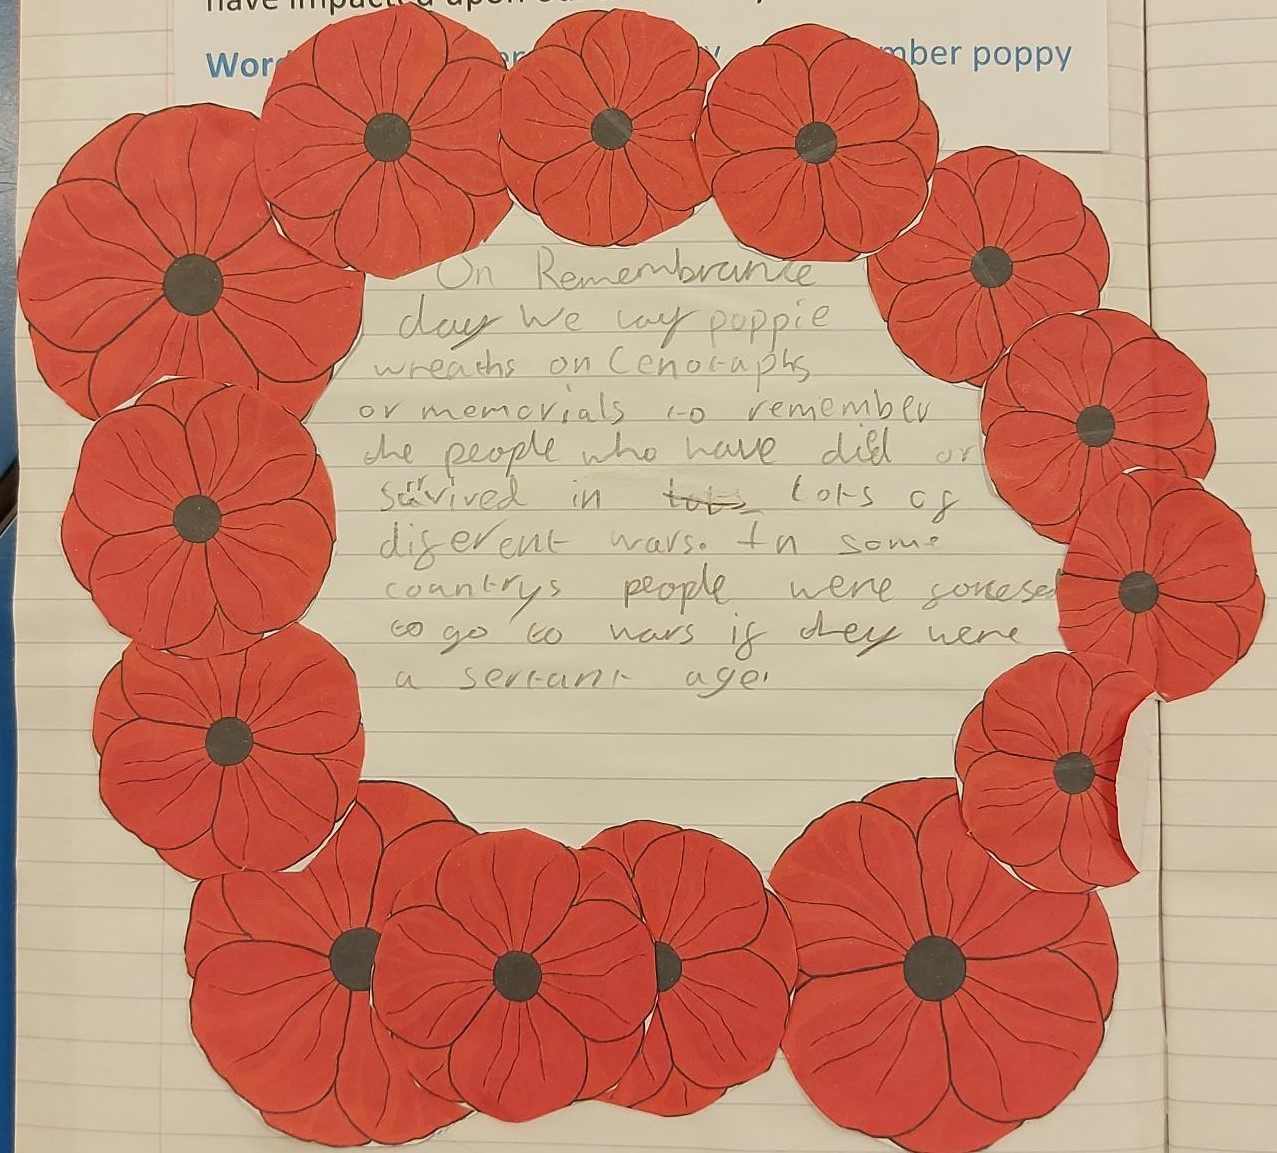 have impacted upon our
Word er y mber poppy
On Remembrance
day We lay poppie
wreaths on Cenotaphs
or memorials to remember
the people who have died or
survived in lots lots of
diferent wars. In some
countrys people were forcesed
to go to wars if they were
a sertant age.